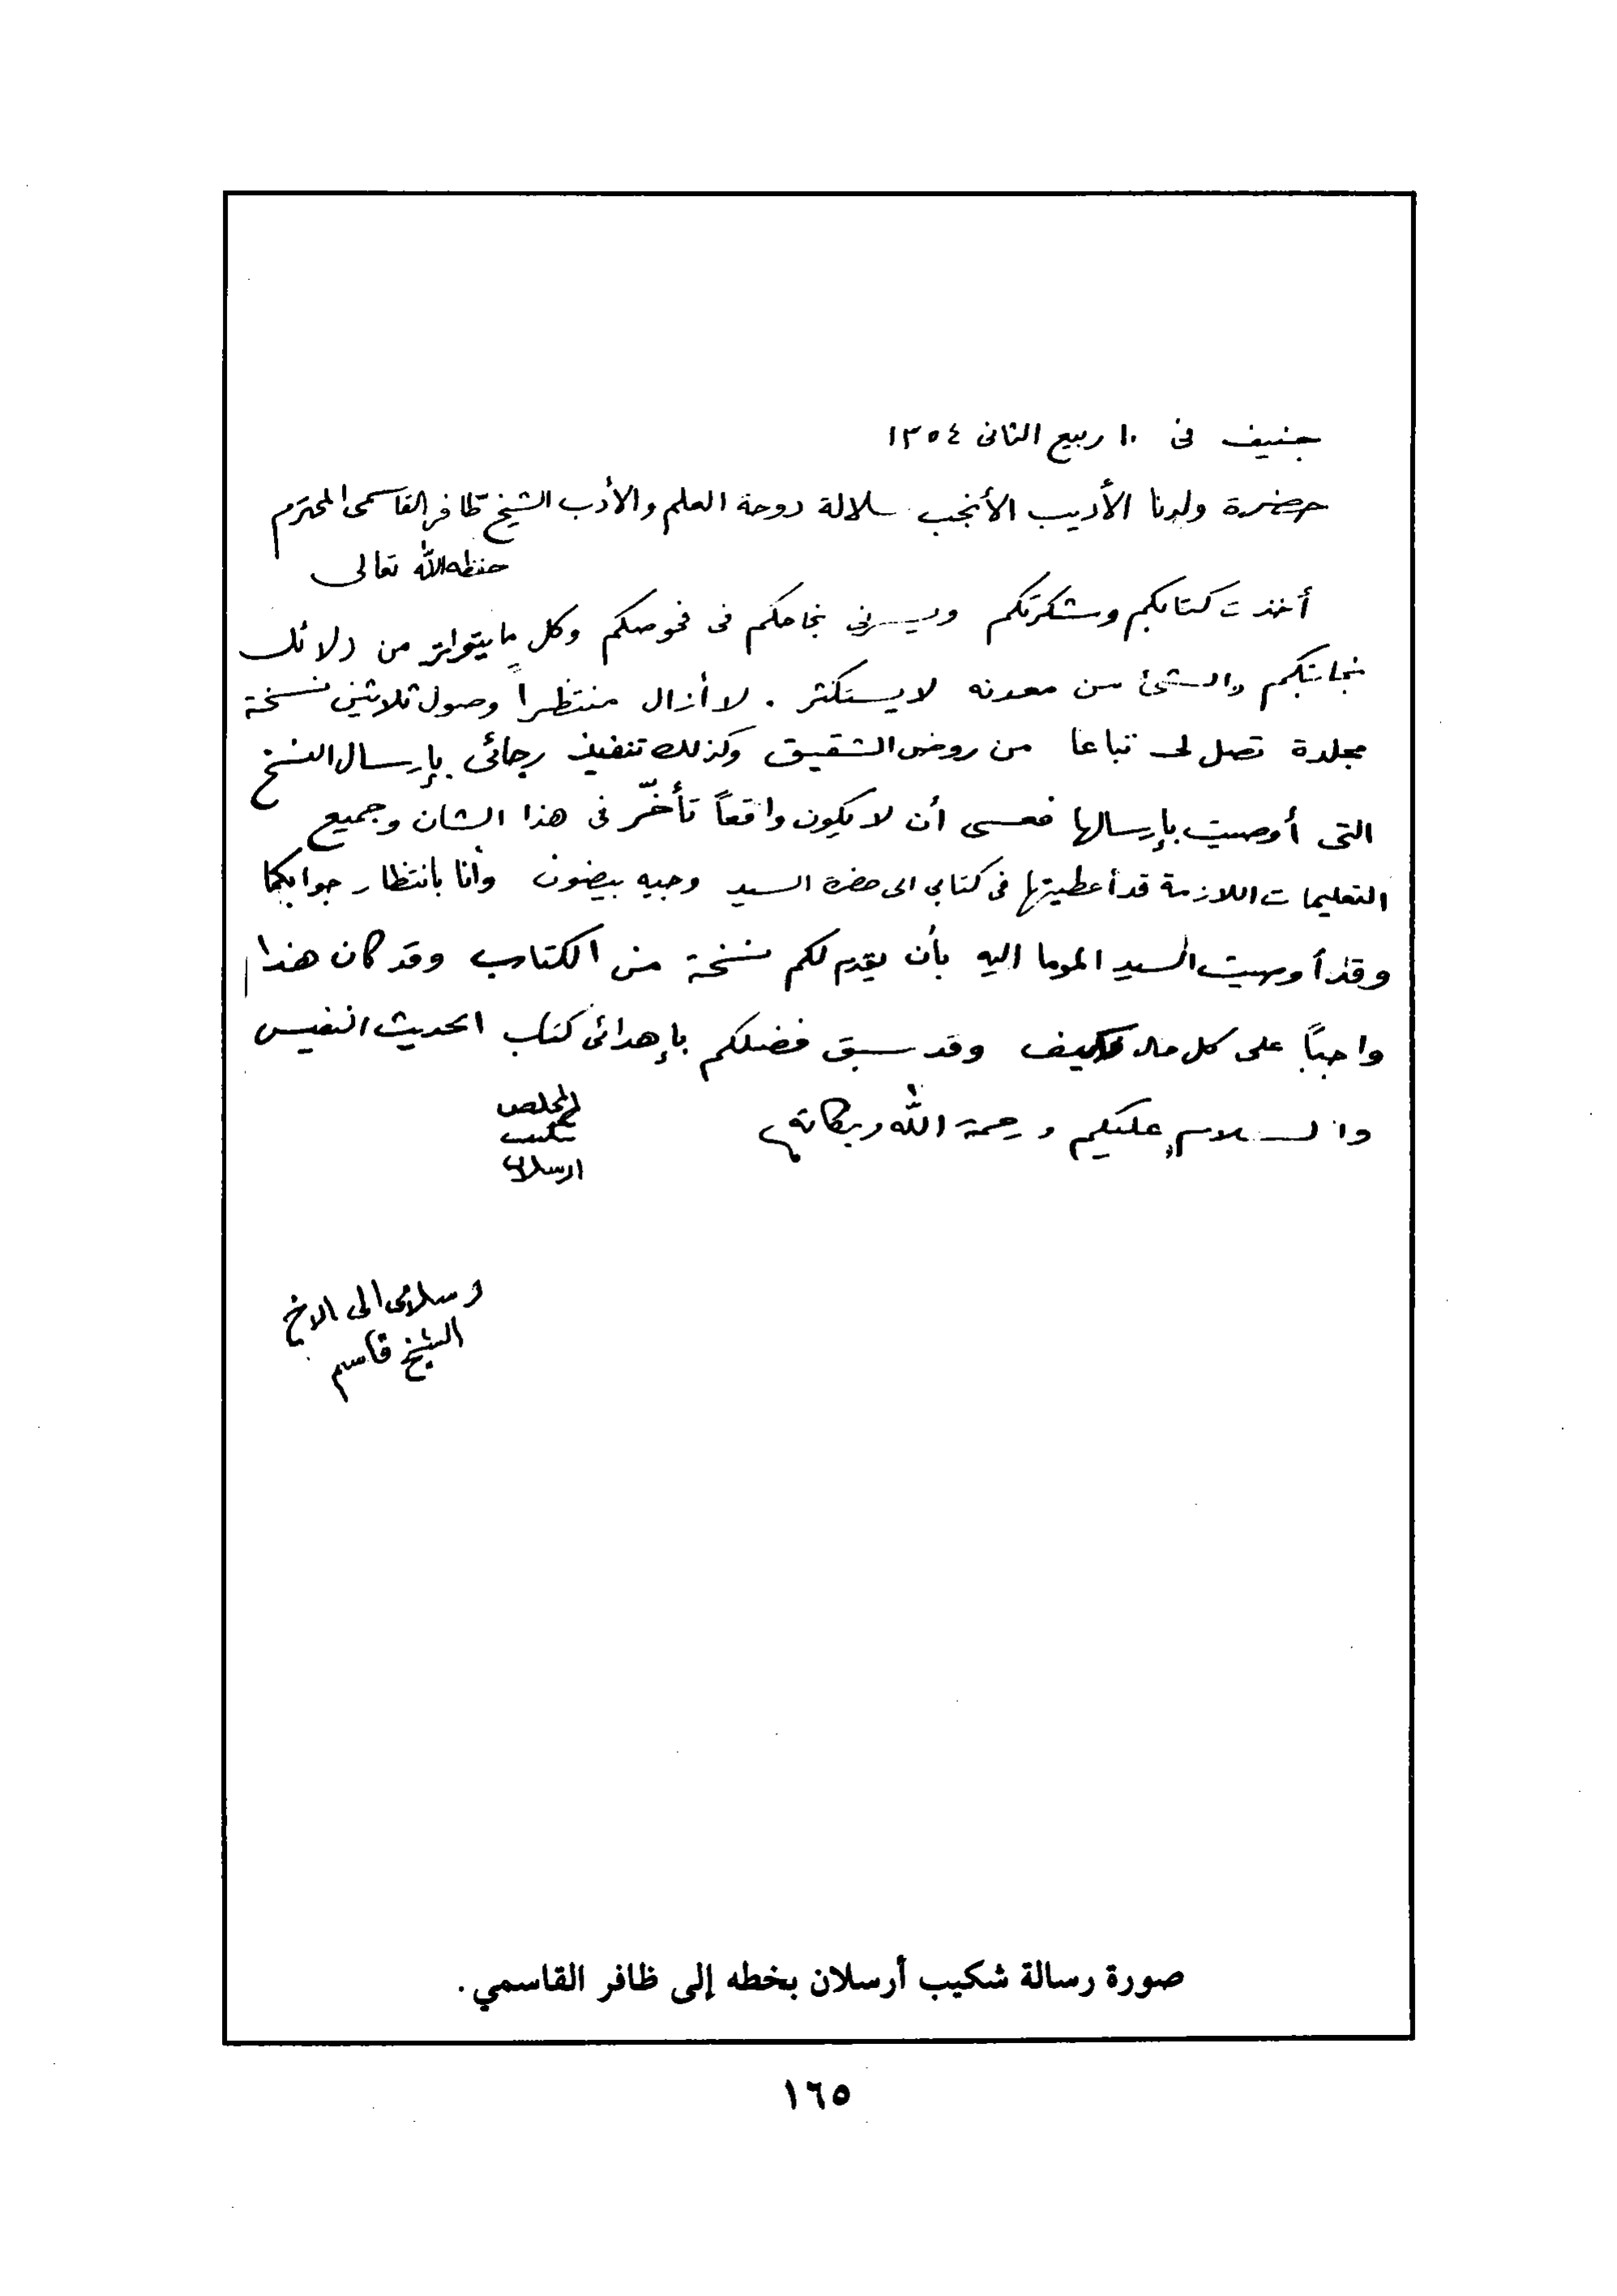 جنيف فى ١٠ ربيع الثانى ١٣٥٤
حضرة ولدنا الأديب الأنجب سلالة دوحة العلم والأدب الشيخ ظافر القاسمى المحترم
حفظه الله تعالى
أخذت كتابكم وشكرتكم ويسرنى نجاحكم فى فحوصكم وكل ما يتواتر من دلائل
نجابتكم والشئ من معدنه لا يستكثر . لا أزال منتظراً وصول ثلاثين نسخة
مجلدة تصل لى تباعا من روض الشقيق وكذلك تنفيذ رجائى بإرسال النسخ
التى أوصيت بإرسالها فعسى أن لا يكون واقعاً تأخّر فى هذا الشان وجميع
التعليمات اللازمة قد أعطيتها فى كتابي الى حضرة السيد وجيه بيضون وأنا بانتظار جوابكما
وقد أوصيت السيد الموما اليه بأن يقدم لكم نسخة من الكتاب وقد كان هذا
واجباً على كل حال فكيف وقد سبق فضلكم بإهدائى كتاب الحديث النفيس
والسلام عليكم ورحمة الله وبركاته
المخلص
شكيب
ارسلان
وسلامى الى الاخ
الشيخ قاسم
صورة رسالة شكيب أرسلان بخطه إلى ظافر القاسمي .
١٦٥